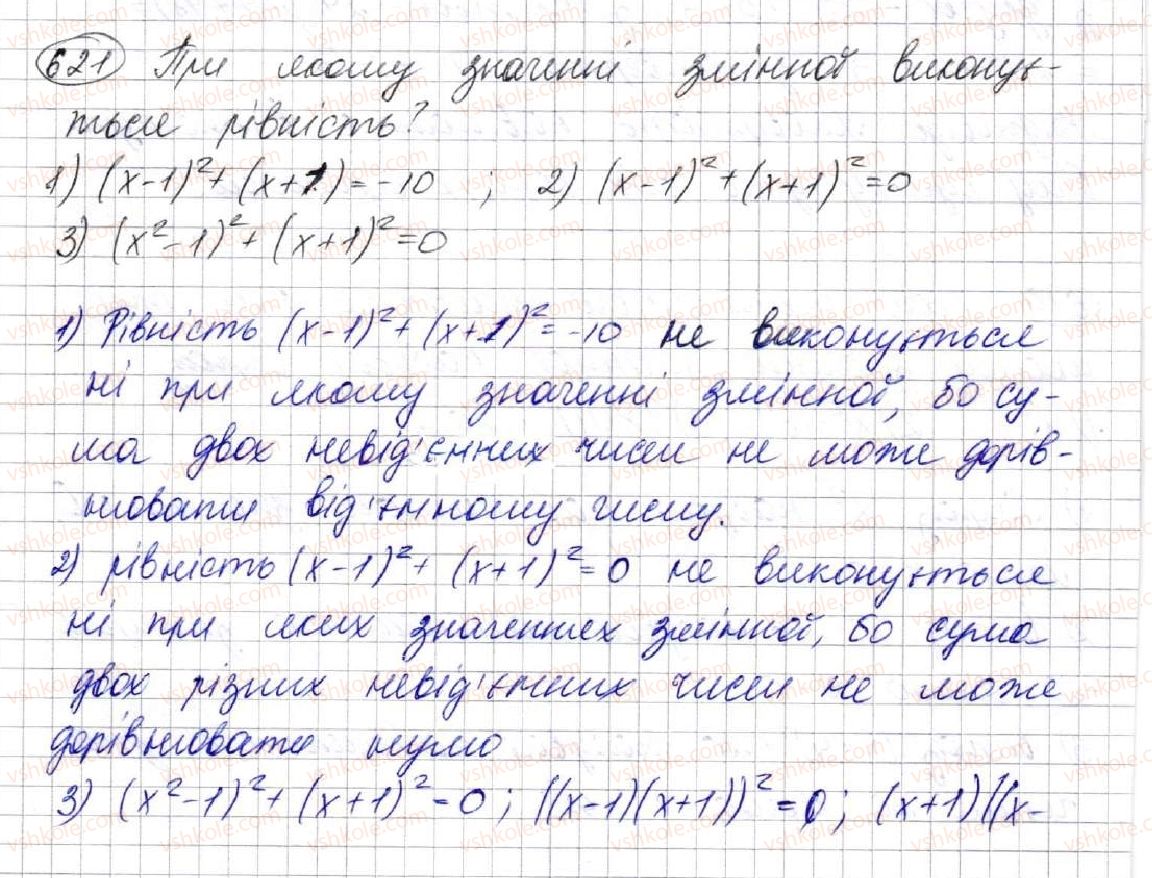 621 При якому значенні змінної викону-
ться рівність?
1) (x-1)²+ (x+1) = -10 ; 2) (x-1)²+(x+1)²=0
3) (x²-1)²+ (x+1)²=0
1) Рівність (x-1)²+ (x+1)²= -10 не виконується
ні при якому значенні змінної, бо су-
ма двох невід'ємних чисел не може дорів-
нювати від'ємному числу.
2) рівність (x-1)²+ (x+1)²= 0 не виконується
ні при яких значеннях змінної, бо сума
двох різних невід'ємних чисел не може
дорівнювати нулю
3) (x²-1)²+ (x+1)²=0; ((x-1)(x+1))²=0; (x+1)((x-